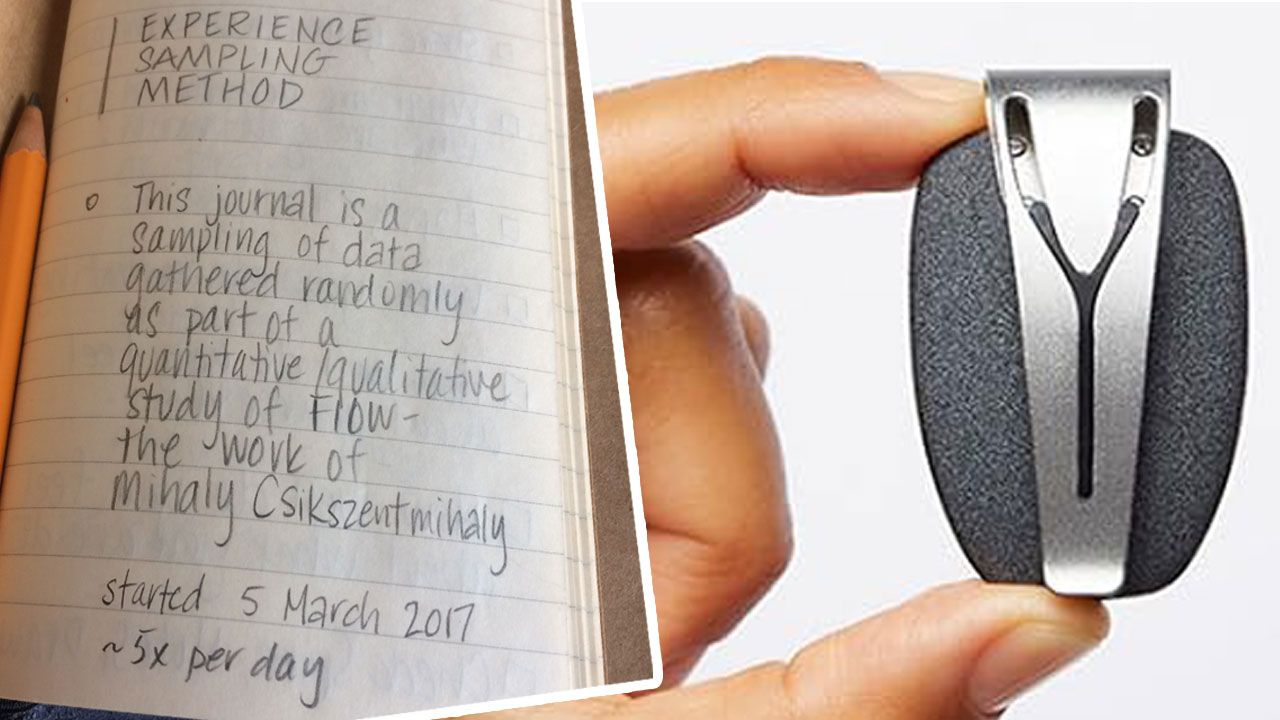 EXPERIENCE
SAMPLING
METHOD
This journal is a
sampling of data
gathered randomly
as part of a
quantitative/qualitative
study of Flow-
the work of
Mihaly Csikszentmihaly
started 5 March 2017
~5x per day